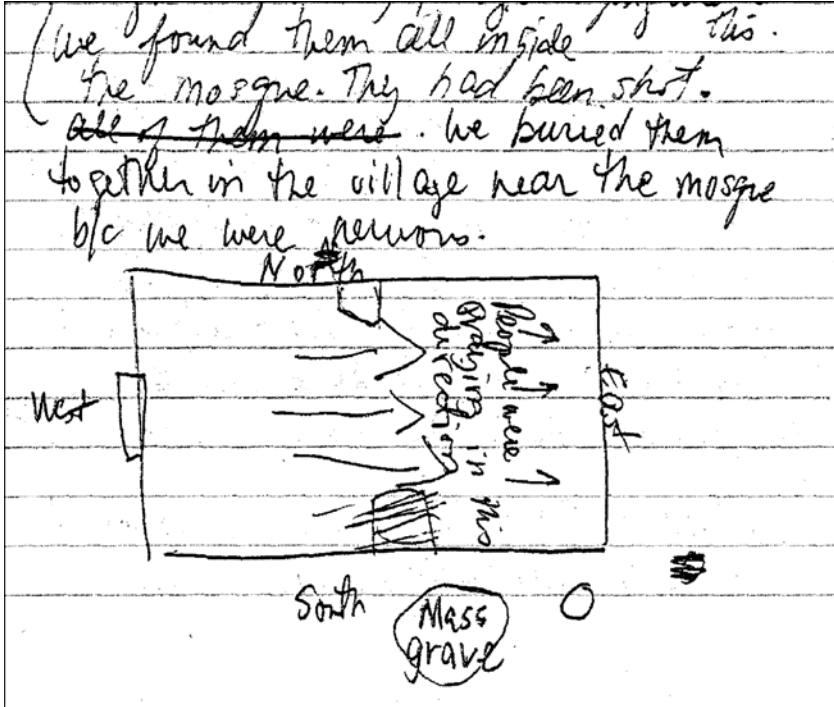 we found them all inside this.
the mosque. They had been shot.
all of them were. We buried them
together in the village near the mosque
b/c we were nervous.
North
People were
praying in this
direction
West
East
South
Mass
grave